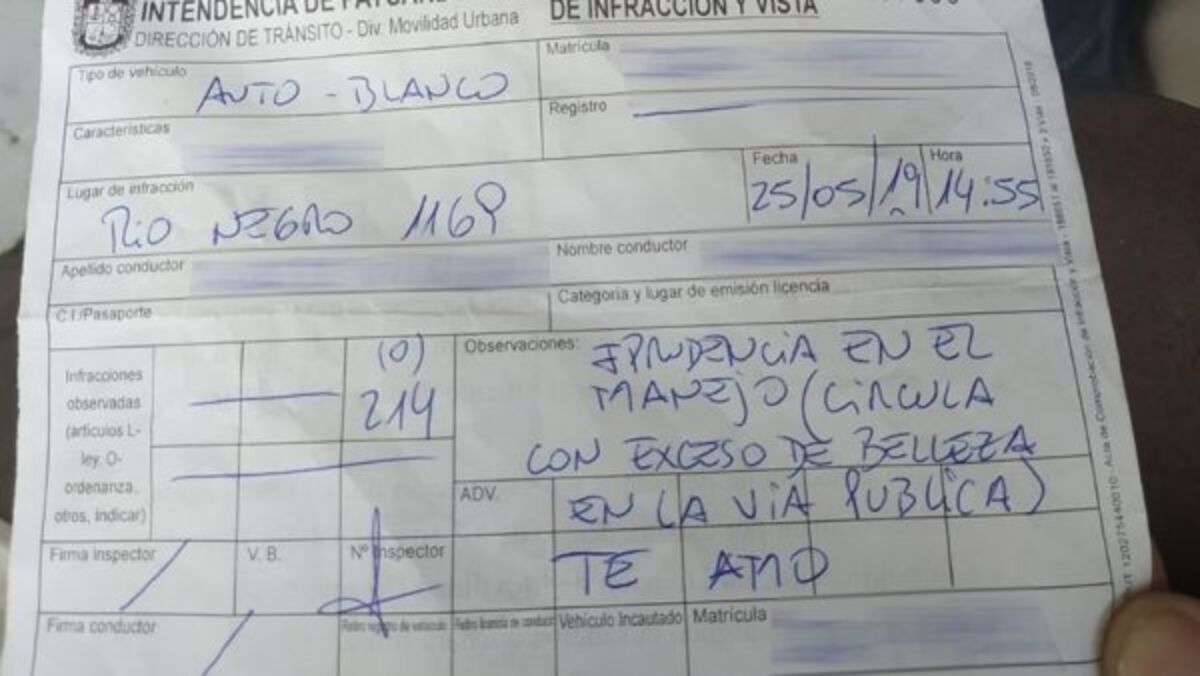 INTENDENCIA DE
DE INFRACCIÓN Y VISTA
DIRECCIÓN DE TRÁNSITO - Div. Movilidad Urbana
Tipo de vehículo
AUTO - BLANCO
Matrícula
Características
Registro
Lugar de infracción
RIO NEGRO 1169
Fecha
25/05/19
Hora
14:55
Apellido conductor
Nombre conductor
C.I./Pasaporte
Categoria y lugar de emisión licencia
Infracciones
observadas
(artículos L-
ley, O-
ordenanza,
otros, indicar)
(O)
214
Observaciones:
IPRUDENCIA EN EL
MANEJO (CIRCULA
CON EXCESO DE BELLEZA
ADV.
EN LA VIA PUBLICA)
TE AMO
Firma inspector
V. B.
Nº Inspector
Firma conductor
Retiro registro de vehículo
Retiro licencia de conducir
Vehículo Incautado
Matrícula